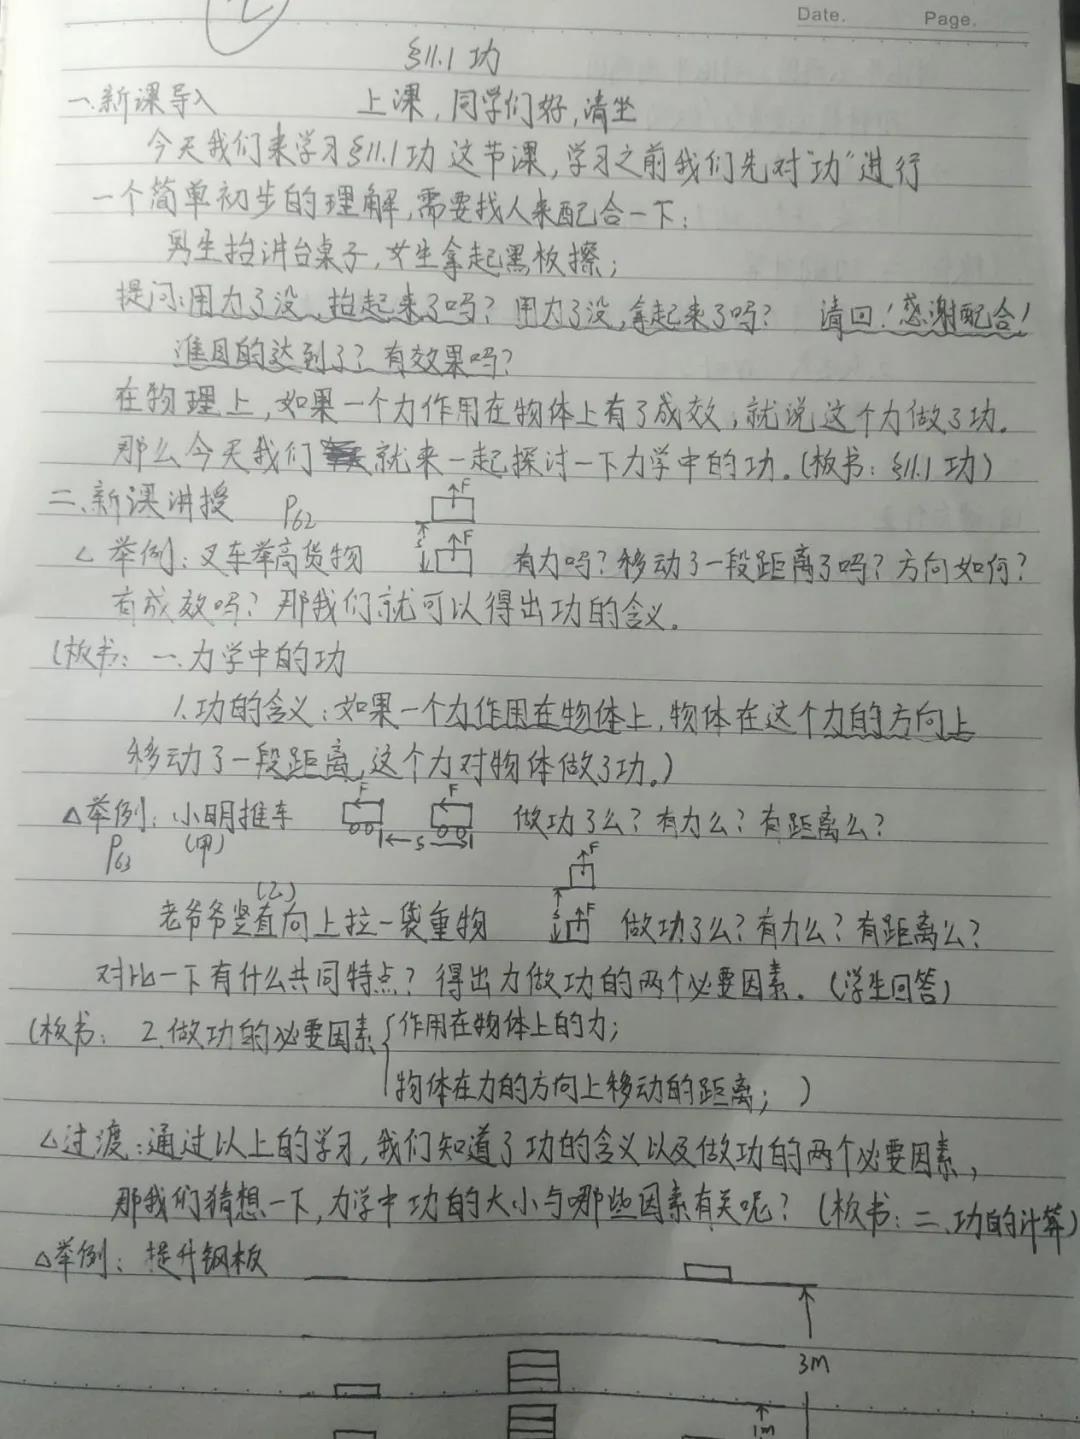 Date. Page.
§11.1 功
一、新课导入 上课，同学们好，请坐
今天我们来学习§11.1功 这节课，学习之前我们先对"功"进行
一个简单初步的理解，需要找人来配合一下：
男生抬讲台桌子，女生拿起黑板擦；
提问：用力了没，抬起来了吗？用力了没，拿起来了吗？ 请回！感谢配合！
谁目的达到了？有效果吗？
在物理上，如果一个力作用在物体上有了成效，就说这个力做了功。
那么今天我们就来一起探讨一下力学中的功。（板书：§11.1 功）
二、新课讲授 P62 F
△举例：叉车举高货物 s F 有力吗？移动了一段距离了吗？方向如何？
有成效吗？那我们就可以得出功的含义。
（板书：一、力学中的功
1.功的含义：如果一个力作用在物体上，物体在这个力的方向上
移动了一段距离，这个力对物体做了功。）
△举例：小明推车 F F 做功了么？有力么？有距离么？
P63 （甲） s
（乙） F
老爷爷竖直向上拉一袋重物 s F 做功了么？有力么？有距离么？
对比一下有什么共同特点？得出力做功的两个必要因素。（学生回答）
（板书：2.做功的必要因素{作用在物体上的力；
物体在力的方向上移动的距离；）
△过渡：通过以上的学习，我们知道了功的含义以及做功的两个必要因素，
那我们猜想一下，力学中功的大小与哪些因素有关呢？（板书：二、功的计算）
△举例：提升钢板
3m
1m